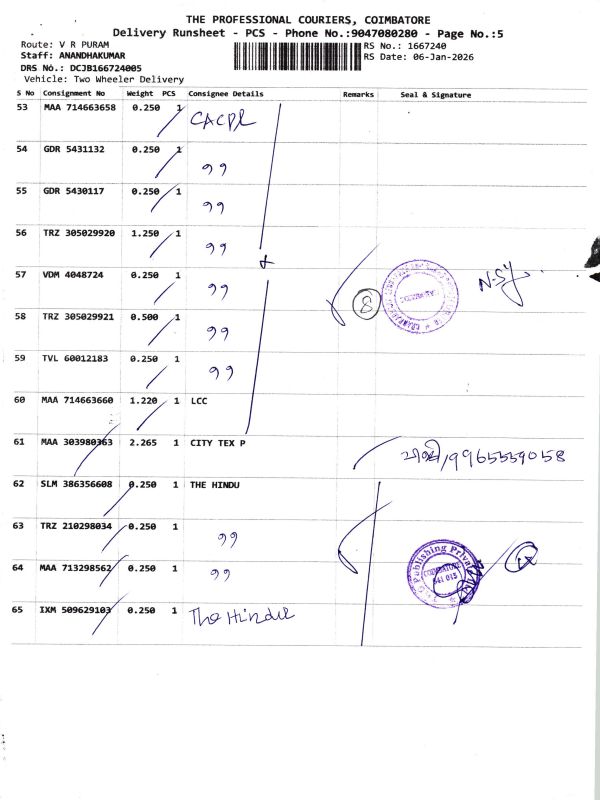 THE PROFESSIONAL COURIERS, COIMBATORE
Delivery Runsheet - PCS - Phone No.:9047080280 - Page No.:5
Route: V R PURAM
RS No.: 1667240
Staff: ANANDHAKUMAR
RS Date: 06-Jan-2026
DRS No.: DCJB166724005
Vehicle: Two Wheeler Delivery
S No Consignment No Weight PCS Consignee Details Remarks Seal & Signature
53 MAA 714663658 0.250 1 CACPL
54 GDR 5431132 0.250 1 99
55 GDR 5430117 0.250 1 99
56 TRZ 305029920 1.250 1 99
57 VDM 4048724 0.250 1 99
8
58 TRZ 305029921 0.500 1 99
59 TVL 60012183 0.250 1 99
60 MAA 714663660 1.220 1 LCC
61 MAA 303980363 2.265 1 CITY TEX P
9965559058
62 SLM 386356608 0.250 1 THE HINDU
63 TRZ 210298034 0.250 1 99
64 MAA 713298562 0.250 1 99
Publishing Priva
COIMBATORE
641 015
65 IXM 509629103 0.250 1 The Hindu